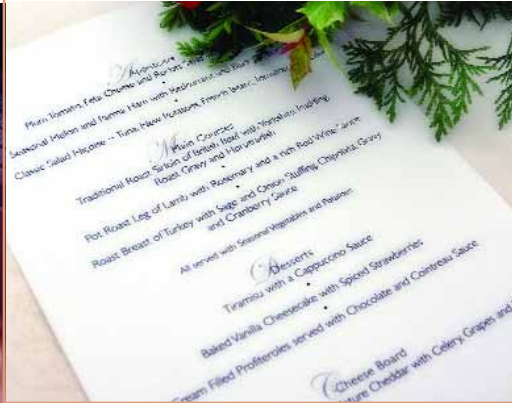 Plum Tomato, Feta Cheese and Rocket Salad
Seasonal Melon and Parma Ham with
Classic Salad Nicoise - Tuna, New Potatoes, French Beans,
Main Courses
Traditional Roast Sirloin of British Beef with Yorkshire Pudding,
Roast Gravy and Horseradish
Pot Roast Leg of Lamb with Rosemary and a rich Red Wine Sauce
Roast Breast of Turkey with Sage and Onion Stuffing, Chipolata, Gravy
and Cranberry Sauce
All served with Seasonal Vegetables and Potatoes
Desserts
Tiramisu with a Cappuccino Sauce
Baked Vanilla Cheesecake with Spiced Strawberries
Cream Filled Profiteroles served with Chocolate and Cointreau Sauce
Cheese Board
ture Cheddar with Celery, Grapes and